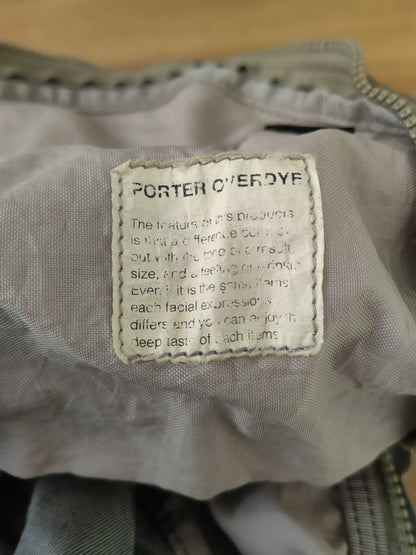 PORTER OVERDYE
The feature of this products
is that a difference comes
out with the tone of a result,
size, and a feeling of wrinkle.
Even if it is the same items
each facial expressions
differs and you can enjoy th
deep taste of each items